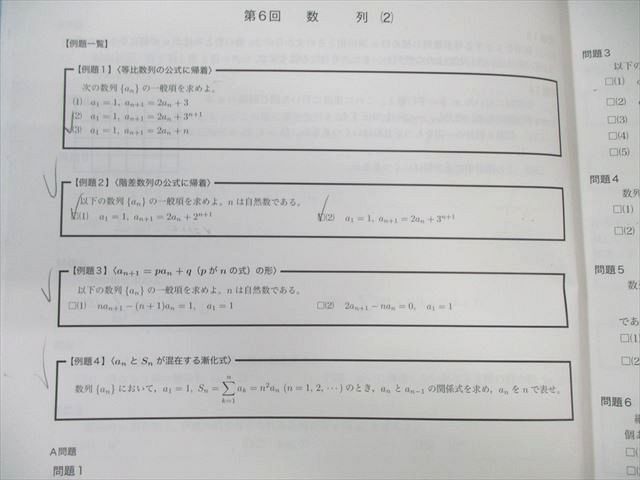 第6回 数 列 (2)
【例題一覧】
【例題1】〈等比数列の公式に帰着〉
次の数列 {aₙ} の一般項を求めよ。
(1) a₁ = 1, aₙ₊₁ = 2aₙ + 3
(2) a₁ = 1, aₙ₊₁ = 2aₙ + 3ⁿ⁺¹
(3) a₁ = 1, aₙ₊₁ = 2aₙ + n
【例題2】〈階差数列の公式に帰着〉
以下の数列 {aₙ} の一般項を求めよ。n は自然数である。
□(1) a₁ = 1, aₙ₊₁ = 2aₙ + 2ⁿ⁺¹ □(2) a₁ = 1, aₙ₊₁ = 2aₙ + 3ⁿ⁺¹
【例題3】〈aₙ₊₁ = paₙ + q (p が n の式) の形〉
以下の数列 {aₙ} の一般項を求めよ。n は自然数である。
□(1) naₙ₊₁ − (n + 1)aₙ = 1, a₁ = 1 □(2) 2aₙ₊₁ − naₙ = 0, a₁ = 1
【例題4】〈aₙ と Sₙ が混在する漸化式〉
数列 {aₙ} において, a₁ = 1, Sₙ = ∑ₖ₌₁ⁿ aₖ = n²aₙ (n = 1, 2, ⋯) のとき, aₙ と aₙ₋₁ の関係式を求め, aₙ を n で表せ。
A問題
問題1
問題3
以下の
□(1)
□(2)
□(3)
□(4)
□(5)
問題4
数列
□(1)
□(2)
問題5
数
であ
□(1)
□(2)
問題6
個